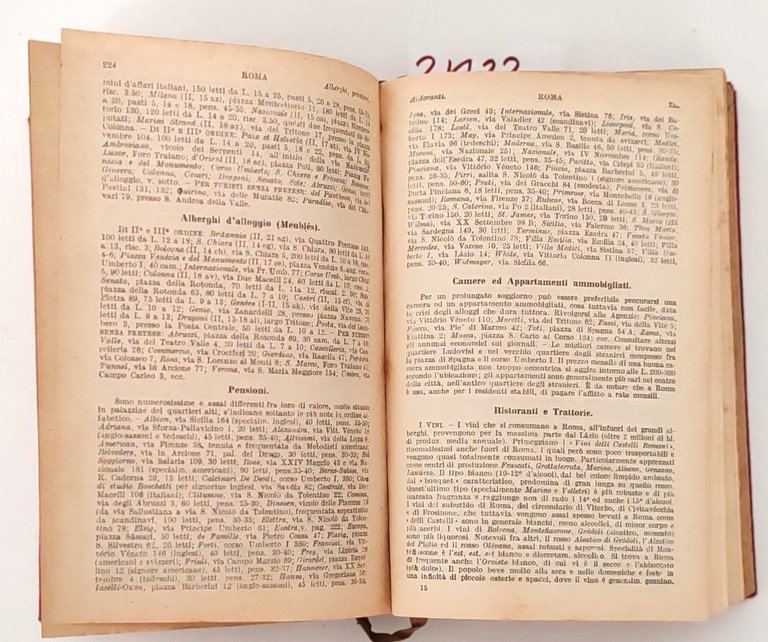 224
ROMA
Alberghi, pensioni.
mini d'affari italiani, 150 letti da L. 15 a 25, pasti 5, 20 e 28, pens.
risc. 3.50; Milano (II, 15 az), piazza Montecitorio 11, 180 letti da L.
a 20, pasti 5, 14 e 18, pens. 45-55; Nazionale (II, 15 co), piazza Montecitorio
torio 130, 120 letti da L. 14 a 20, risc. 3.50, questi due frequentati da
putati; Marini Strand (II, 18 ay), via del Tritone 17, presso piazza
Colonna. – Di IIº e IIIº ORDINE: Paix et Helvetia (II,
vembre 104, 100 letti da L. 14 a 20, pasti 5, 18 e 22, pens. da L.
Ambrosiano, vicolo dei Serpenti 14, all'inizio della via Nazionale
Luzor, Foro Traiano; d'Orient (II, 18 az), piazza Poli, 80 letti;
nezia e del Monumento; Corso Umberto; S. Chiara e
Ginevra; Colonna; Cesari; Dragoni; Senato; Sole; Abruzzi,
d'alloggio, v. sotto. – PER TURISTI SENZA PRETESE: del Pantheon, via dei
Pastini 131, 132; Quirino, via delle Muratte 82; Paradiso, via dei
vari 79, presso S. Andrea della Valle.
Alberghi d'alloggio (Meublés).
DI IIº e IIIº ORDINE: Britannia (II, 21 ag), via Quattro Fontane 149,
100 letti da L. 12 a 18; S. Chiara (II, 14
a 13, risc. 3; Bologna (II, 14 ch), via S. Chiara 5, 200 letti da L. 10 a 16,
4-6; Piazza Venézia e del Monumento (II, 17 ce), piazza Venézia 6, ang. corso
Umberto I, 40 cam.; Internazionale, via Pr. Umb. 77; Corso Umb.
5, 90 letti; Colonna (II, 18 av), via Due Macelli 24, 60 letti da L. 10, risc. 2;
Senato, piazza della Rotonda, 70 letti da L. 11a 12, riscal. 2.50; Sole,
piazza della Rotonda 63, 80 letti da L. 7 a 10; Cesàri (II, 15 cf), via di
Pietra 89, 75 letti da L. 9 a 13; Genève (I-II, 15 ax), via della Vite 29, 70
letti da L. 10 a 12; Genio, via Zanardelli 28, presso piazza Navona, 70
letti da L. 9 a 13; Dragoni (II, 15 al), largo Tritone; Posta, via del Gambero
bero 3, presso la Posta Centrale, 50 letti da L. 10 a 12. – PER TURISTI
SENZA PRETESE: Abruzzi, piazza della Rotonda 69, 30 cam. da L. 7 a 10;
Valle, via del Teatro Valle 4, 30 letti da L. 7 a 10; Cancelleria, via
celleria 26; Commercio, via Crociferi 20; Giardino, via Rasella 47; Perione,
via Colosseo 7; Rosa, via S. Lorenzo ai Monti 8; S. Marco, Foro Traiano 43;
Tunnel, via in Arcione 77; Verona, via S. Maria Maggiore 154; Umbro, via
Campo Carleo 3, ecc.
Pensioni.
Sono numerosissime e assai differenti fra loro di valore, molte situate
in palazzine dei quartieri alti; s'indicano soltanto le più note in ordine alfabetico.
fabetico. – Albion, via Sicilia 164 (specialm. inglesi), 40 letti, pens. 35-50;
Adriana, via Sforza-Pallavicino 1, 20 letti; Alexandra, via Vitt. Véneto 18
(anglo-sassoni e tedeschi), 45 letti, pens. 35-40; Altissimi, via della Lupa 8;
American, via Firenze 38, tenuta e frequentata da Metodisti americani;
Belvedere, via in Arcione 71, pal. del Drago, 30 letti, pens. 30-35; Bel
Soggiorno, via Salaria 109, 30 letti; Boos, via XXIV Maggio 43 e via Nazionale
zionale 181 (specialm. americani), 90 letti, pens.35-40; Berne-Suisse, via
R. Cadorna 29, 15 letti; Calcinari De Denti, corso Umberto I, 380; Casa
di studio Ronchetti per signorine inglesi, via Savóia 82; Centrale, via Due
Macelli 106 (italiani); Clitumno, via S. Nicolò da Tolentino 22; Cosmo,
via degli Abruzzi 3, 60 letti, pens. 25-30; Dinesen, vicolo delle Fiamme 19
(da via Sallustiana a via S. Nicolò da Tolentino), frequentata soprattutto
da scandinavi, 100 letti, pens. 30-35; Elettra, via S. Nicolò da Tolentino
tino 78; Eleig, via Principe Umberto 61; Esedra,v. pag. 222; Europa,
piazza Sàssari, 50 letti; de Famille, via Pietro Cossa 47; Flavia, piazza
S. Silvestro 62, 20 letti; Forti, corso Umberto I 380; Francini, via Vittorio
tòrio Véneto 146 (inglesi), 40 letti, pens. 30-40; Frey, via Ligùria 26
(americani e svizzeri); Friuli, via Campo Marzio 69; Girardet, piazza Esquilino
lino 12 (signore americane), 45 letti, pens. 32-37; Hannover, via XX Settembre
tembre 4 (tedeschi), 30 letti, pens. 27-32; Hanza, via Gregoriana 56;
Iaselli-Owen, piazza Barberini 12 (anglo-sassoni), 45 letti, pens. 30-35;
Ristoranti.
ROMA
Iosa, via dei Greci 43; Internazionale, via Sistina 76; Iris, via dei Babuino
milano 114; Larsen, via Valadier 42 (scandinavi); Liverpool, via S.
cilia 178; Losèl, via del Teatro Valle 71, 20 letti; Maria, corso Umberto
berto I 173; May, via Principe Amedeo 2, tenuta da svizzeri; Medici,
via Flavia 96 (tedeschi); Moderna, via S. Basilio 46, 50 letti, pens. 30-35;
Moroni, via Nazionale 251; Nazionale, via IV Novembre 114; Olanda,
piazza dell'Esedra 47, 32 letti, pens. 35-45; Pacitto, via Crispi 55 (italiani);
Pinciana, via Vittório Véneto 146; Pincio, piazza Barberini 5, 45 letti,
pens. 26-35; Pirri, salita S. Nicolò da Tolentino 1 (signore americane), 30
letti, pens. 50-60; Prati, via dei Gracchi 84 (modesta); Primavera, via di
Porta Pinciana 6, 18 letti, pens. 30-40; Primrose, via Montebello 16 (anglo-
inglesi); Romana, via Firenze 37; Rubens, via Bocca di Leone 3, 22 letti,
pens. 20-25; S. Caterina, via Po 2 (italiani), 28 letti, pens. 40-45; S. Giorgio,
via Torino 150, 20 letti; St. James, via Torino 150, 20 letti; S. Maria
Vilma, via XX Settembre 98 B; Sicilia, via Palermo 36; Thea Maria,
via Sardegna 149, 30 letti; Terminus, piazza Esedra 47; Veneto Venier,
via S. Nicolò da Tolentino 78; Villa Emilia, via Emilia 24, 40 letti; Villa
Mercedes, via Varese 10, 25 letti; Villa Medici, via Sistina 57; Villa Umberto
berto I, via Lázio 14; White, via Vittoria Colonna 11 (inglesi), 32 letti,
pens. 30-40; Widmayer, via Sicilia 66.
Camere ed Appartamenti ammobigliati.
Per un prolungato soggiorno può essere preferibile procurarsi una
camera od un appartamento ammobigliati, cosa tuttavia non facile, data
la crisi degli alloggi che dura tuttora. Rivolgersi alle Agenzie: Pinciana,
via Vittório Véneto 110; Moretti, via del Tritone 62; Fassi, via della Vite 5;
Fiocco, via Piè di Marmo 42; Toti, piazza di Spagna 54 A; Zama, via
Ecàttima 2; Mosca, piazza S. Carlo al Corso 124; ecc. Consultare altresì
gli annunzi economici sui giornali. – Le migliori camere si trovano nel
quartiere Ludovisi e nel vecchio quartiere degli stranieri compreso fra
la piazza di Spagna e il corso Umberto I. Il prezzo mensile di una buona camera
ammobigliata non troppo eccentrica si aggira intorno alle L. 200-300
secondo l'ubicazione; gli appartamenti sono generalmente più cari nel centro
della città, nell'antico quartiere degli stranieri. È da notare che a Roma
è uso, anche per i residenti stabili, di pagare l'affitto a rate mensili.
Ristoranti e Trattorie.
I VINI. – I vini che si consumano a Roma, all'infuori dei grandi alberghi,
berghi, provengono per la massima parte dal Lázio (oltre 2 milioni di hl.
di produz. media annuale). Primeggiano i « Vini dei Castelli Romani »,
rinomatissimi anche fuori di Roma, i quali però sono poco trasportabili e
vengono quasi totalmente consumati in luogo. Particolarmente apprezzati
come centri di produzione Frascati, Grottaferrata, Marino, Albano, Genzano,
Lanúvio. Il tipo bianco (10-12º d'alcool), dal bel colore limpido ambrato,
dal « bouquet » caratteristico, predomina di gran lunga su quello rosso.
Quest'ultimo tipo (specialmente Marino e Velletri) è più robusto e di più
marcata fragranza e raggiunge non di rado i 14º ed anche i 15º d'alcool.
I vini del suburbio di Roma, del circondario di Viterbo, di Civitavècchia
e di Frosinone, che tuttavia vengono assai spesso bevuti a Roma come
« delli Castelli » sono in generale bianchi, meno alcoolici, di minor corpo e
più acerbi. I vini di Bolsena, Montefiascone e Gràdoli (aleático, moscato)
sono più liquorosi. Notevoli fra altri, il rosso Aleatico di Grádoli, l'Aleatico
del Piglio ed il rosso Olévano, assai robusti e saporosi. Specialità di Montefiascone
fiascone è l'est, est, est bianco e discretam. alcoolico. Si trova a Roma
di frequente anche l'Orvieto bianco, di cui vi è il secco e l'abboccato
(più dolce). Il popolo beve molto alla sera e nelle domeniche e feste in
una infinità di piccole osterie e spacci, dove il vino è generalm. genuino.
15